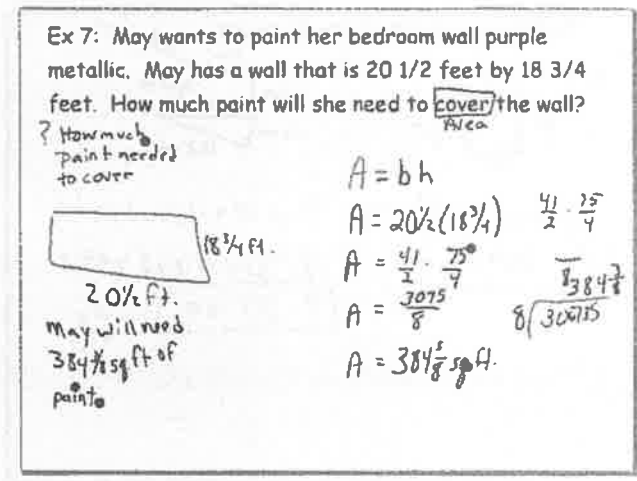 Ex 7: May wants to paint her bedroom wall purple
metallic. May has a wall that is 20 1/2 feet by 18 3/4
feet. How much paint will she need to cover the wall?
Area
? How much
paint needed
to cover
18 3/4 ft.
20 1/2 ft.
May will need
sq ft of
paint
A = bh
A = 20 1/2 (18 3/4)
A = 41/2 · 75/4
A = 3075/8
A = 384 sq ft.
41/2 · 75/4
8